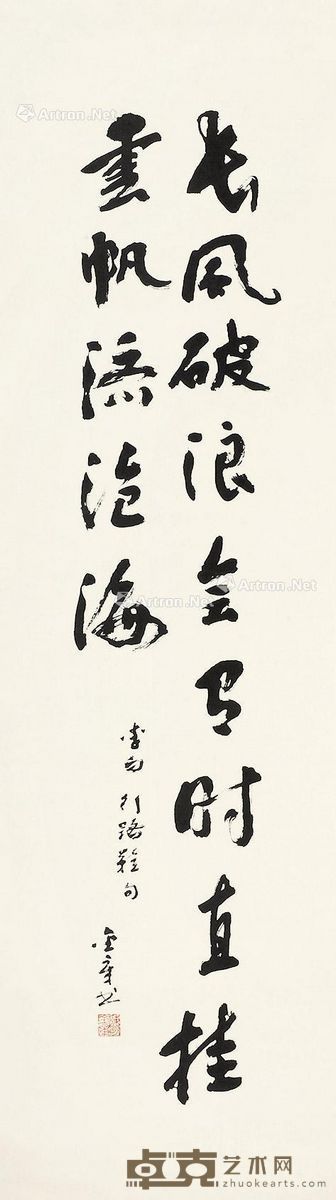 长风破浪会有时直挂
云帆济沧海
李白行路难句
Artron.Net
Artron.Net
Artron.Net
Artron.Net
卓克艺术网
zhuokearts.com